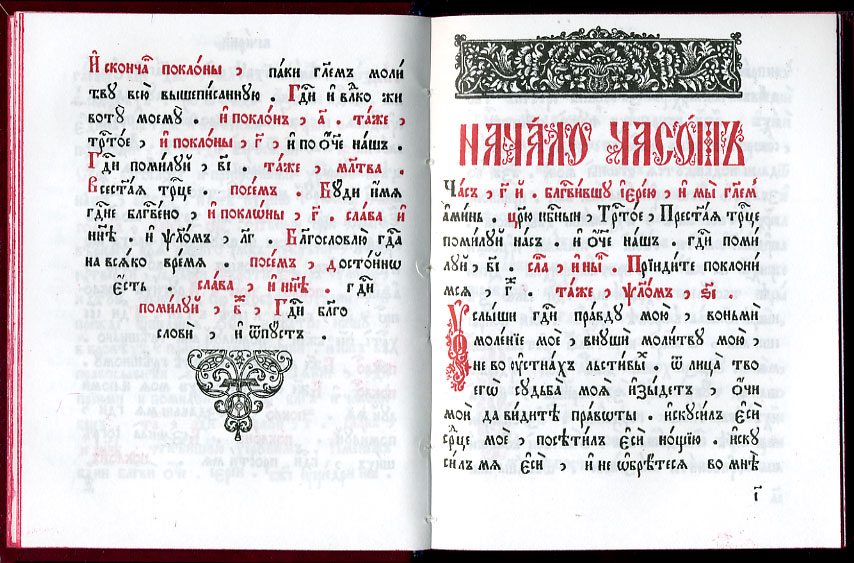 И҆ сконча́в поклѡ́ны , паки гл҃емъ моли
тву всю̀ вышеписанную . Гдⷭ҇и и҆ вл҃ко жи
вотꙋ̀ моемꙋ̀ . и҆ поклонъ , а҃ . та́же ,
трⷭ҇то́е , и҆ поклоны , г҃ , и҆ по ѻ҆́ч҃е нашъ .
Гдⷭ҇и поми́луй , в҃і . та́же , мл҃тва .
Всест҃а́ѧ трⷪ҇це . посе́мъ . Бꙋди и҆́мѧ
гдⷭ҇не блг҃ве́но , и҆ поклѡны , г҃ . сла́ва и҆
ны́нѣ . и҆ ѱл҃о́мъ , л҃г . Бл҃гословлю̀ гдⷭ҇а
на всѧко вре́мѧ . посе́мъ , досто́йнѡ
є҆́сть . сла́ва , и҆ ны́нѣ . гдⷭ҇и
поми́луй , в҃ , Гдⷭ҇и бл҃го
словѝ , и҆ ѿпꙋстъ .
НАЧА́ЛО ЧАСО́МЪ
Часъ , г҃ й . бл҃гви́вшу і҆ере́ю , и҆ мы̀ гл҃ем
а҆ми́нь . цр҃ю̀ нбⷭ҇ныи , Трⷭ҇то́е , Прест҃а́ѧ трⷪ҇це
поми́луй насъ . и҆ ѻ҆́ч҃е нашъ . гдⷭ҇и поми́
луй , в҃і . сла́ , и҆ ны́ . Прїиди́те поклони́
мсѧ , г҃ . та́же , ѱл҃о́мъ , ѕ҃і .
Оу҆слы́ши гдⷭ҇и пра́вдꙋ мою̀ , воньмѝ
моле́нїе моѐ , внꙋшѝ моли́твꙋ мою̀ ,
не во ᲂу҆стна́хъ льсти́вы . ѿ лица̀ тво
егѡ̀ сꙋдьба̀ моѧ̀ и҆зы́детъ , ѻ҆́чи
моѝ да ви́дитѣ правѡты̀ . и҆скꙋси́лъ є҆сѝ
ср҃це моѐ , посѣти́лъ є҆сѝ но́щїю . и҆скꙋ
си́лъ мѧ є҆сѝ , и҆ не ѡ҆брѣ́тесѧ во мнѣ̀
і҃